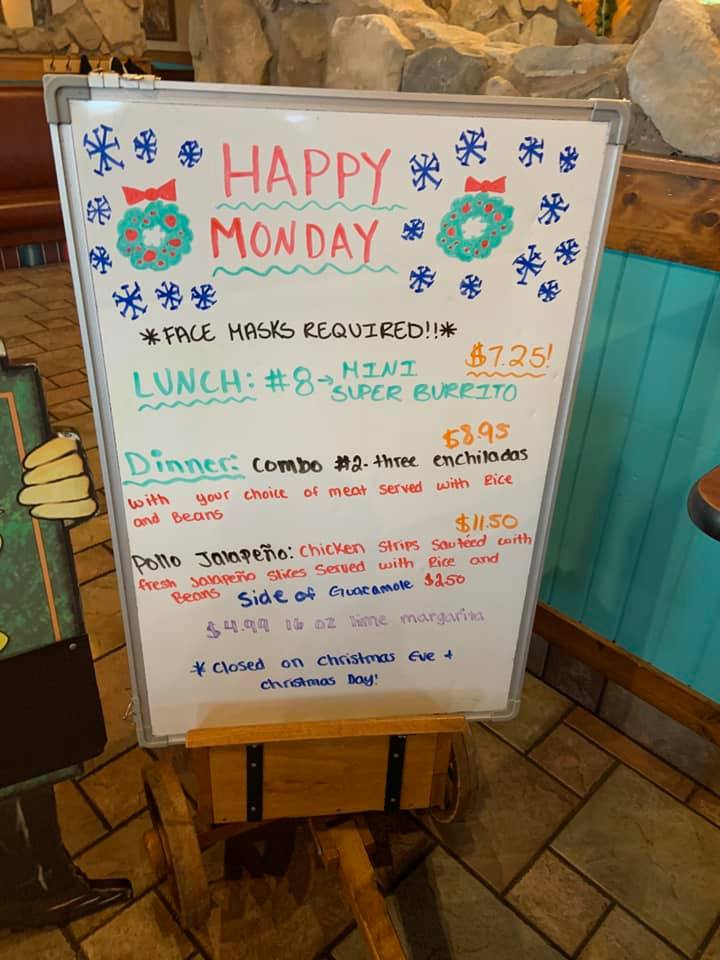 HAPPY
MONDAY
*FACE MASKS REQUIRED!!*
$7.25!
LUNCH: #8→ MINI
SUPER BURRITO
$8.95
Dinner: Combo #2- three enchiladas
with your choice of meat served with Rice
and Beans
$11.50
Pollo Jalapeño: Chicken Strips Sautéed with
fresh Jalapeño Slices Served with Rice and
Beans Side of Guacamole $2.50
$4.99 16 oz lime margarita
* Closed on Christmas Eve +
Christmas Day!